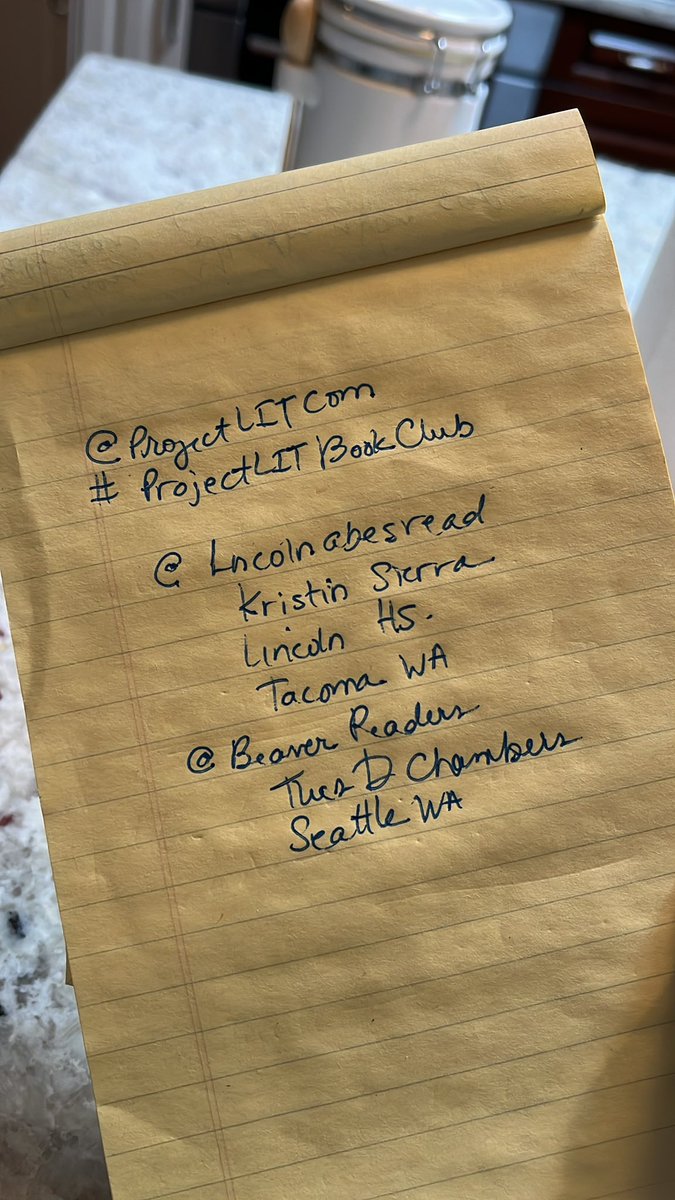 @ProjectLITCom
# ProjectLIT BookClub
@ Lncolnabesread
Kristin Sierra
Lincoln HS.
Tacoma WA
@ Beaver Readers
Tues D Chambers
Seattle WA